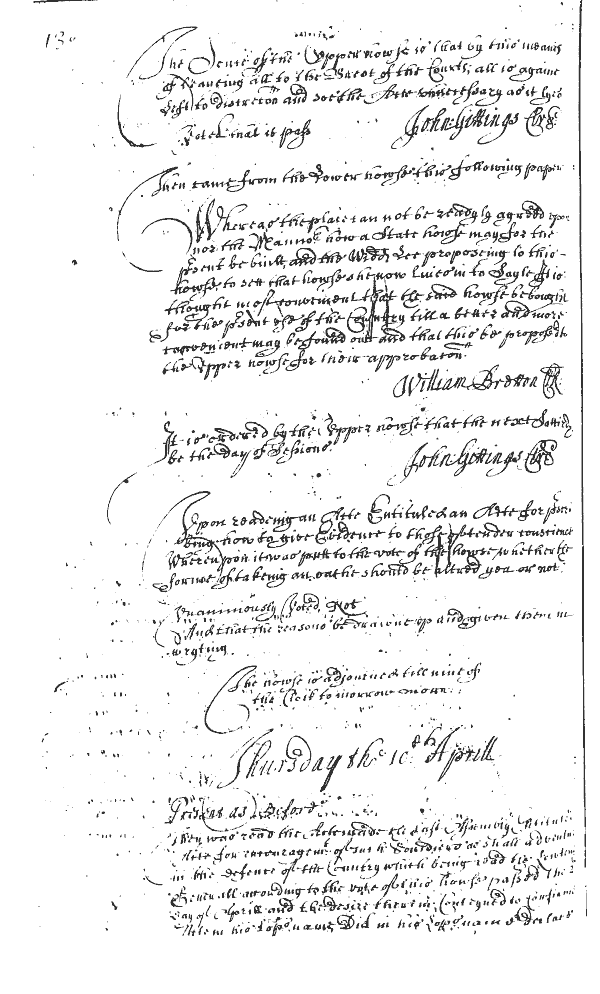 130
The Sence of the Upper howse is that by this means
of leaveing all to the Brest of the Courts; all is againe
left to discretion and soe the Acte unnecessary as it lyes
Voted that it pass
John Gittings Clre
Then came from the Lower howse this following paper
Whereas the place can not be readyly agreed upon
nor the Mannor how a State howse may for the
p'sent be built and the Widd: Lee proposeing to this
howse to sell that howse she now lives in to Sayle It is
thought most convenient that the said howse be bought
for the p'sent use of the Country till a better and more
convenient may be found out and that this be proposed to
the Upper howse for their approbacon
William Bretton Clk
It is ordered by the Upper howse that the next
be the day of Sessions
John Gittings Clre
Upon readeing an Acte Entituled an Acte for
being how to give Evidence to those of tender conscience
Whereupon it was putt to the vote of the howse whether the
forme of takeing an oathe should be altred yea or not
Unanimously Voted Not
And that the reasons be drawne up and given them in
wryting
The howse is adjourned till nine of
the Clock to morrow morn
Thursday the 10th Aprill
Present as Before
Then was read the Acte made the last Assembly
Acte for encouragem't of such Souldiers as shall adventure
in the defence of the Country which being read the
Generall according to the vote of this house passed the
day of Aprill and the desire therein
in his Lopps name Did in his Lopps name declare